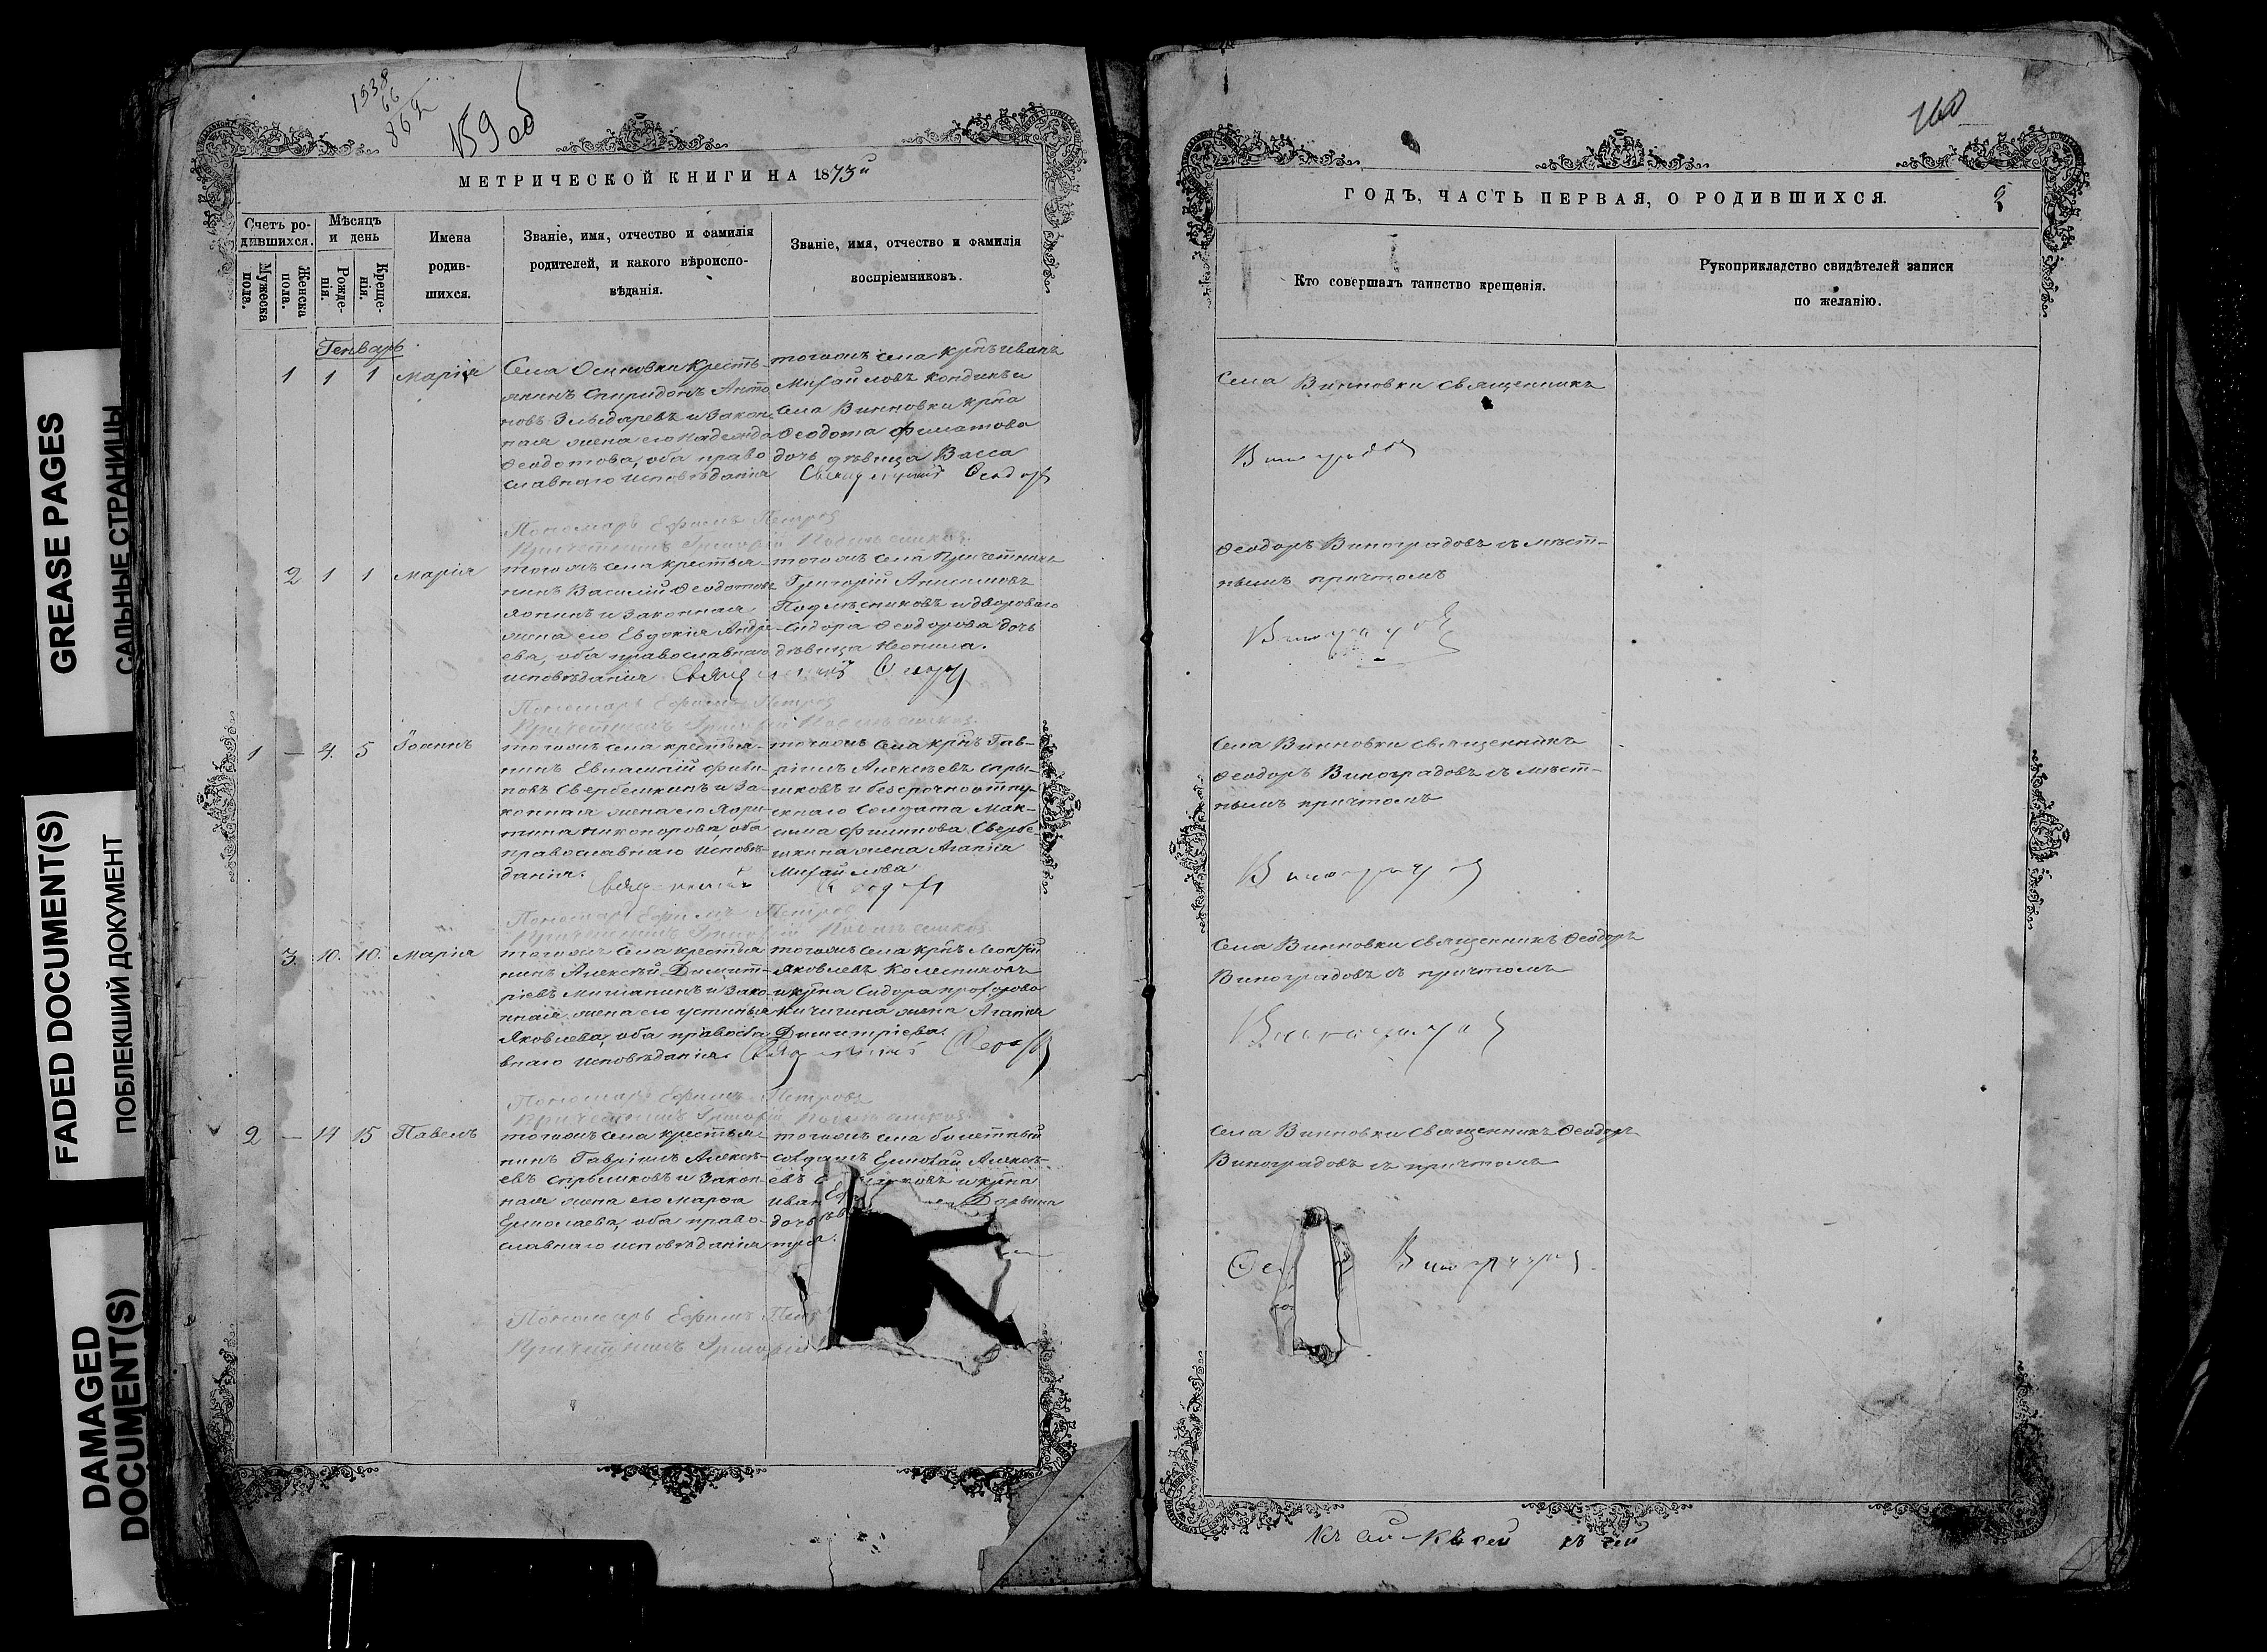 GREASE PAGES
САЛЬНЫЕ СТРАНИЦЫ
FADED DOCUMENT(S)
ПОБЛЕКШИЙ ДОКУМЕНТ
DAMAGED
DOCUMENT(S)
1938
66
159 об
МЕТРИЧЕСКОЙ КНИГИ НА 1873й
Счетъ ро-
дившихся.
Мужеска пола.
Женска пола.
Мѣсяцъ
и день
Рожде-
нія.
Креще-
нія.
Имена
родив-
шихся.
Званіе, имя, отчество и фамилія
родителей, и какого вѣроиспо-
вѣданія.
Званіе, имя, отчество и фамилія
воспріемниковъ.
Генварь
1 1 1 Марія
Села Осиновки кресть-
янинъ Спиридонъ Анто
новъ и закон-
ная жена его Надежда
Феодотова, оба право
славнаго исповѣданія
тогожъ села крнъ Иванъ
Михайловъ и
села Винновки крна
Феодота Филатова
дочь дѣвица Васса
Священникъ Феодоръ
Пономарь Ефимъ Петровъ
Причетникъ Григорій
2 1 1 Марія
тогожъ села крестья-
нинъ Василій Феодотовъ
и законная
жена его Евдокія Андре
ева, оба православнаго
исповѣданія
тогожъ села Причетникъ
Григорій Анисимовъ
и двороваго
Сидора Феодорова дочь
дѣвица Неонила.
Священникъ
Пономарь Ефимъ Петровъ
Причетникъ Григорій
1 — 4. 5 Іоаннъ
тогожъ села крестья-
нинъ Евлампій Фили-
повъ Свербешкинъ и за-
конная жена его
Никонорова, оба
православнаго исповѣ-
данія.
тогожъ села крнъ Гав-
ріилъ Алексѣевъ Спры-
жковъ и безсрочноотпу-
скнаго солдата Мак-
сима Филипова Свербе-
шкина жена Агапія
Михайлова
Пономарь Ефимъ Петровъ
Причетникъ Григорій
3. 10. 10. Марія
тогожъ села крестья
нинъ Алексѣй Димит-
ріевъ Мишанинъ и зако-
нная жена его Устинья
Яковлева, оба правосла
внаго исповѣданія
тогожъ села крнъ Леонтій
Яковлевъ Колесниковъ
и крна Сидора Прохорова
Кичигина жена Агапія
Димитріева.
Пономарь Ефимъ Петровъ
Причетникъ Григорій
2 — 14 15 Павелъ
тогожъ села крестья-
нинъ Гавріилъ Алексѣ-
евъ Спрыжковъ и закон-
ная жена его Марфа
Ермолаева, оба право-
славнаго исповѣданія
тогожъ села билетный
солдатъ Ермолай Алексѣ-
евъ и крна
Иван
дочь
Пономарь Ефимъ
Причетникъ Григорій
160
ГОДЪ, ЧАСТЬ ПЕРВАЯ, О РОДИВШИХСЯ.
Кто совершалъ таинство крещенія.
Рукоприкладство свидѣтелей записи
по желанію.
Села Винновки священникъ
Виноградовъ
Феодоръ Виноградовъ съ мѣст-
нымъ причтомъ
Виноградовъ
Села Винновки священникъ
Феодоръ Виноградовъ съ мѣст-
нымъ причтомъ
Виноградовъ
Села Винновки священникъ Феодоръ
Виноградовъ съ причтомъ
Виноградовъ
Села Винновки священникъ Феодоръ
Виноградовъ съ причтомъ
Виноградовъ
къ сей къ сей къ сей